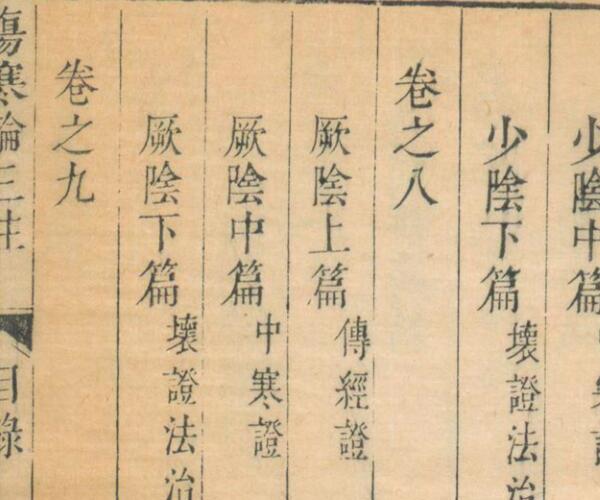 少陰中篇中寒證
少陰下篇壞證法治
卷之八
厥陰上篇傳經證
厥陰中篇中寒證
厥陰下篇壞證法治
卷之九
傷寒論三註
目錄